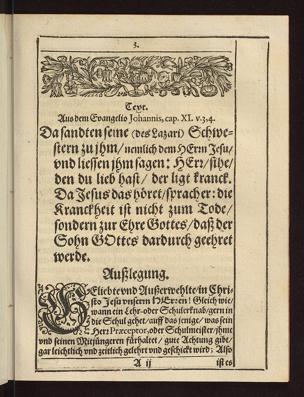 3.
Text.
Aus dem Evangelio Johannis, cap. XI. v. 3, 4.
Da sandten seine (des Lazari) Schwe-
stern zu jhm/ nemlich dem HErrn Jesu/
vnd liessen jhm sagen: HErr/ sihe/
den du lieb hast/ der ligt kranck.
Da Jesus das höret/ sprach er: die
Kranckheit ist nicht zum Tode/
sondern zur Ehre Gottes/ daß der
Sohn GOttes dardurch geehret
werde.
Außlegung.
GEliebte vnd Außerwehlte/ in Chri-
sto Jesu vnserm HErren! Gleich wie/
wann ein Lehr- oder Schulerknab/ gern in
die Schul gehet/ auff das jenige/ was sein
Herr Præceptor, oder Schulmeister/ jhme
vnd seinen Mitjüngeren fürhaltet/ gute Achtung gibt/
gar leichtlich vnd zeitlich gelehrt vnd geschickt wird; Also
A ij
ist es